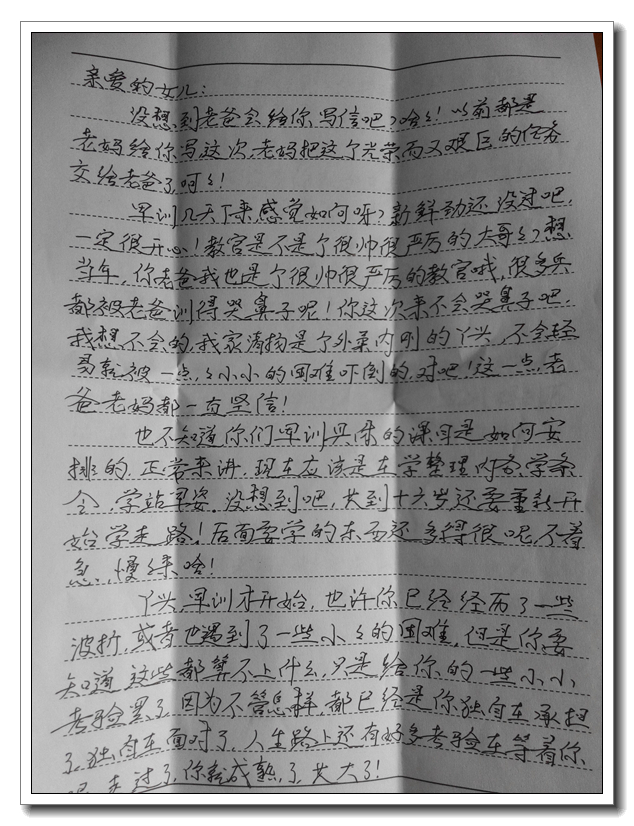 亲爱的女儿:
没想到老爸会给你写信吧?哈哈!以前都是
老妈给你写,这次,老妈把这个光荣而又艰巨的任务
交给老爸了,呵呵!
军训几天下来,感觉如何呀?新鲜劲还没过吧,
一定很开心!教官是不是个很帅很严厉的大哥哥?想
当年,你老爸我也是个很帅很严厉的教官哦,很多兵
都被老爸训得哭鼻子呢!你这次来不会哭鼻子吧,
我想不会的,我家清扬是个外柔内刚的丫头,不会轻
易就被一点点小小的困难吓倒的,对吧!这一点,老
爸老妈都一直坚信!
也不知道你们军训具体的课目是如何安
排的,正常来讲,现在应该是在学整理内务,学条
令,学站军姿。没想到吧,长到十六岁还要重新开
始学走路!后面要学的东西还多得很呢,不着
急,慢慢来哈!
丫头,军训才开始,也许你已经经历了一些
波折,或者也遇到了一些小小的困难,但是你要
知道,这些都算不上什么,只是给你的一些小小
考验罢了,因为不管怎样,都已经是你独自在承担
了,独自在面对了,人生路上还有好多考验在等着你
呢,走过了,你就成熟了,长大了!